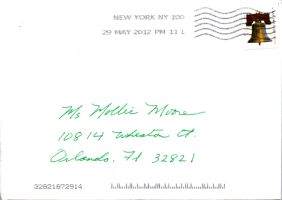 NEW YORK NY 100
29 MAY 2012 PM 11 L
Ms Mollie Moore
10814 Wheaton Ct.
Orlando, Fl 32821
32821872914